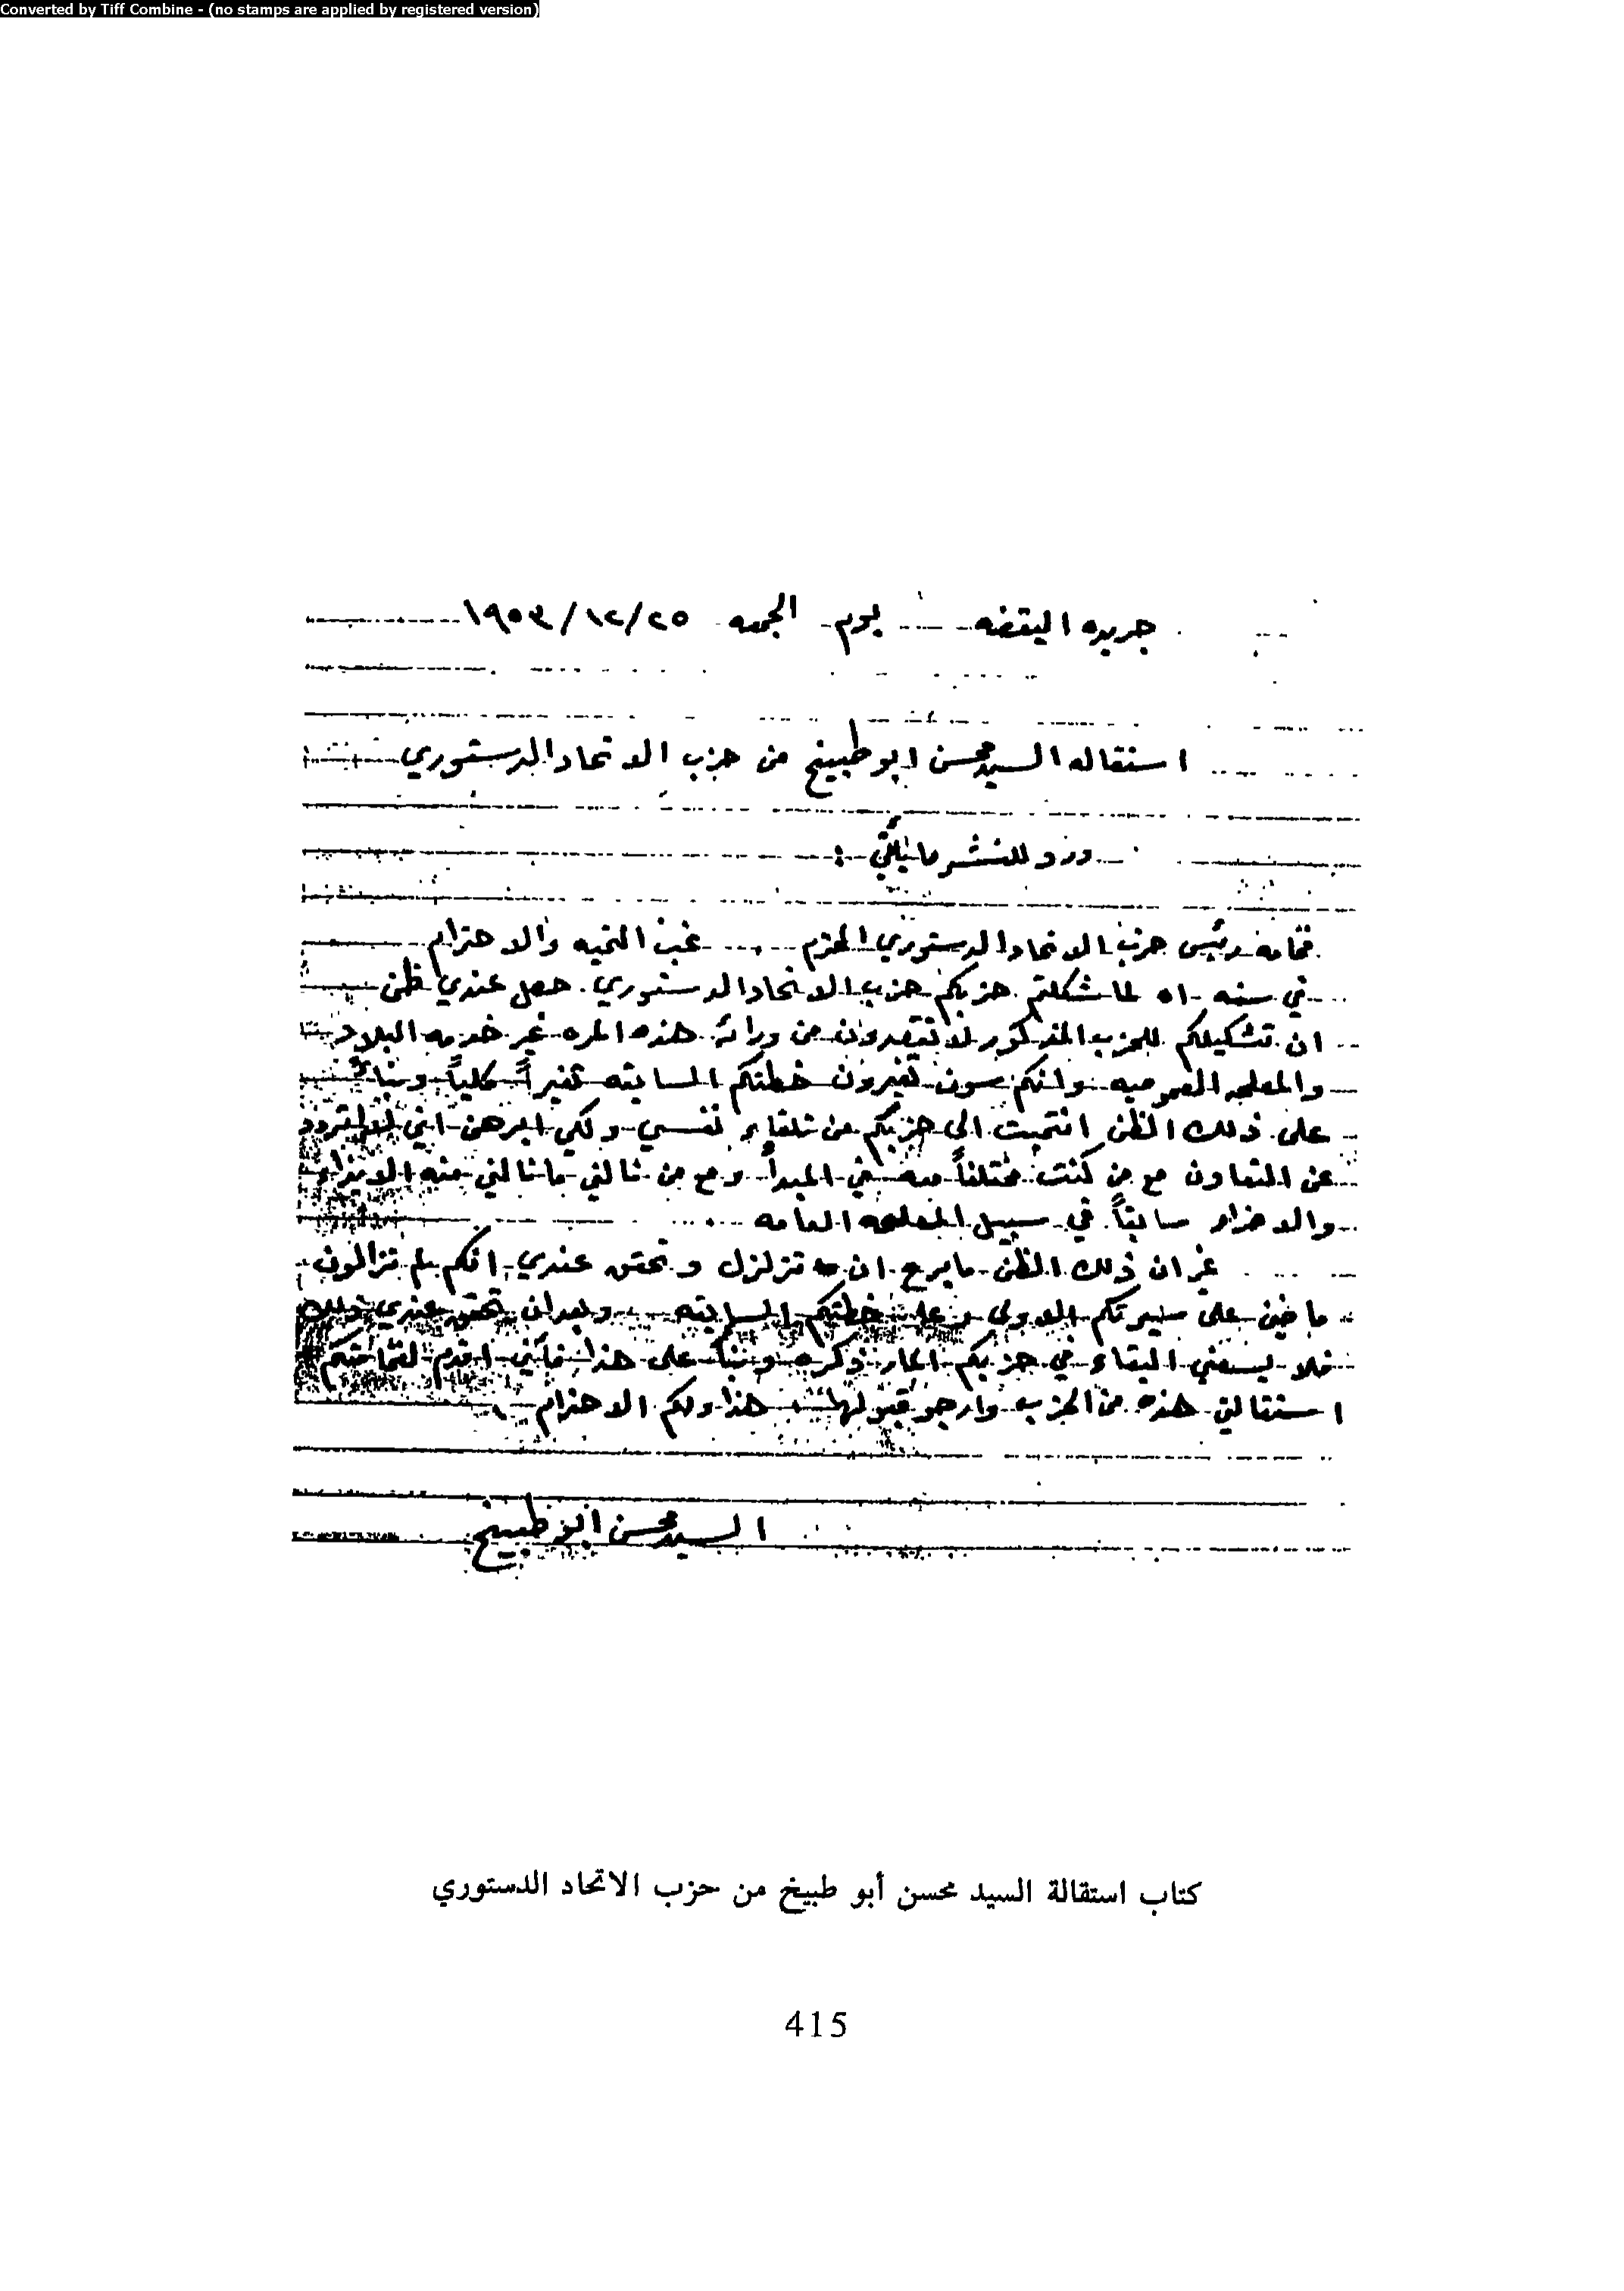 Converted by Tiff Combine - (no stamps are applied by registered version)
جريده اليقضه يوم الجمعه ١٩٥٣/١٢/٢٥
استقاله السيد محسن ابو طبيخ من حزب الاتحاد الدستوري
ورد للنشر ما يأتي :
فخامة رئيس حزب الاتحاد الدستوري المحترم .... غب التحيه والاحترام
في سنه ٥١ لما شكلتم حزبكم حزب الاتحاد الدستوري . حصل عندي ظن
ان تشكيلكم للحزب المذكور لا تقصدون من ورائه هذه المره غير خدمه البلاد
والمصلحه العموميه وانكم سوف تغيرون خطتكم السابقه تغيراً كلياً وبناء
على ذلك الظن انتميت الى حزبكم من تلقاء نفسي ولكي ابرهن انني لا اتردد
عن التعاون مع من كنت مختلفاً معه في المبدأ ومع من نالني ما نالني منه الايذاء
والاضرار سابقاً في سبيل المصلحه العامه ....
غير ان ذلك الظن ما برح ان تزلزل وتحقق عندي انكم لم تزالون
ماضين على سيرتكم الاولى وعلى خطتكم السابقه .. وبعد ان تحقق عندي ذلك
فلا يسعني البقاء في حزبكم المار ذكره وبناء على هذا فأنني اقدم لفخامتكم
استقالتي هذه من الحزب وارجو قبولها هذا ولكم الاحترام ..
السيد محسن ابو طبيخ
كتاب استقالة السيد محسن أبو طبيخ من حزب الاتحاد الدستوري
415